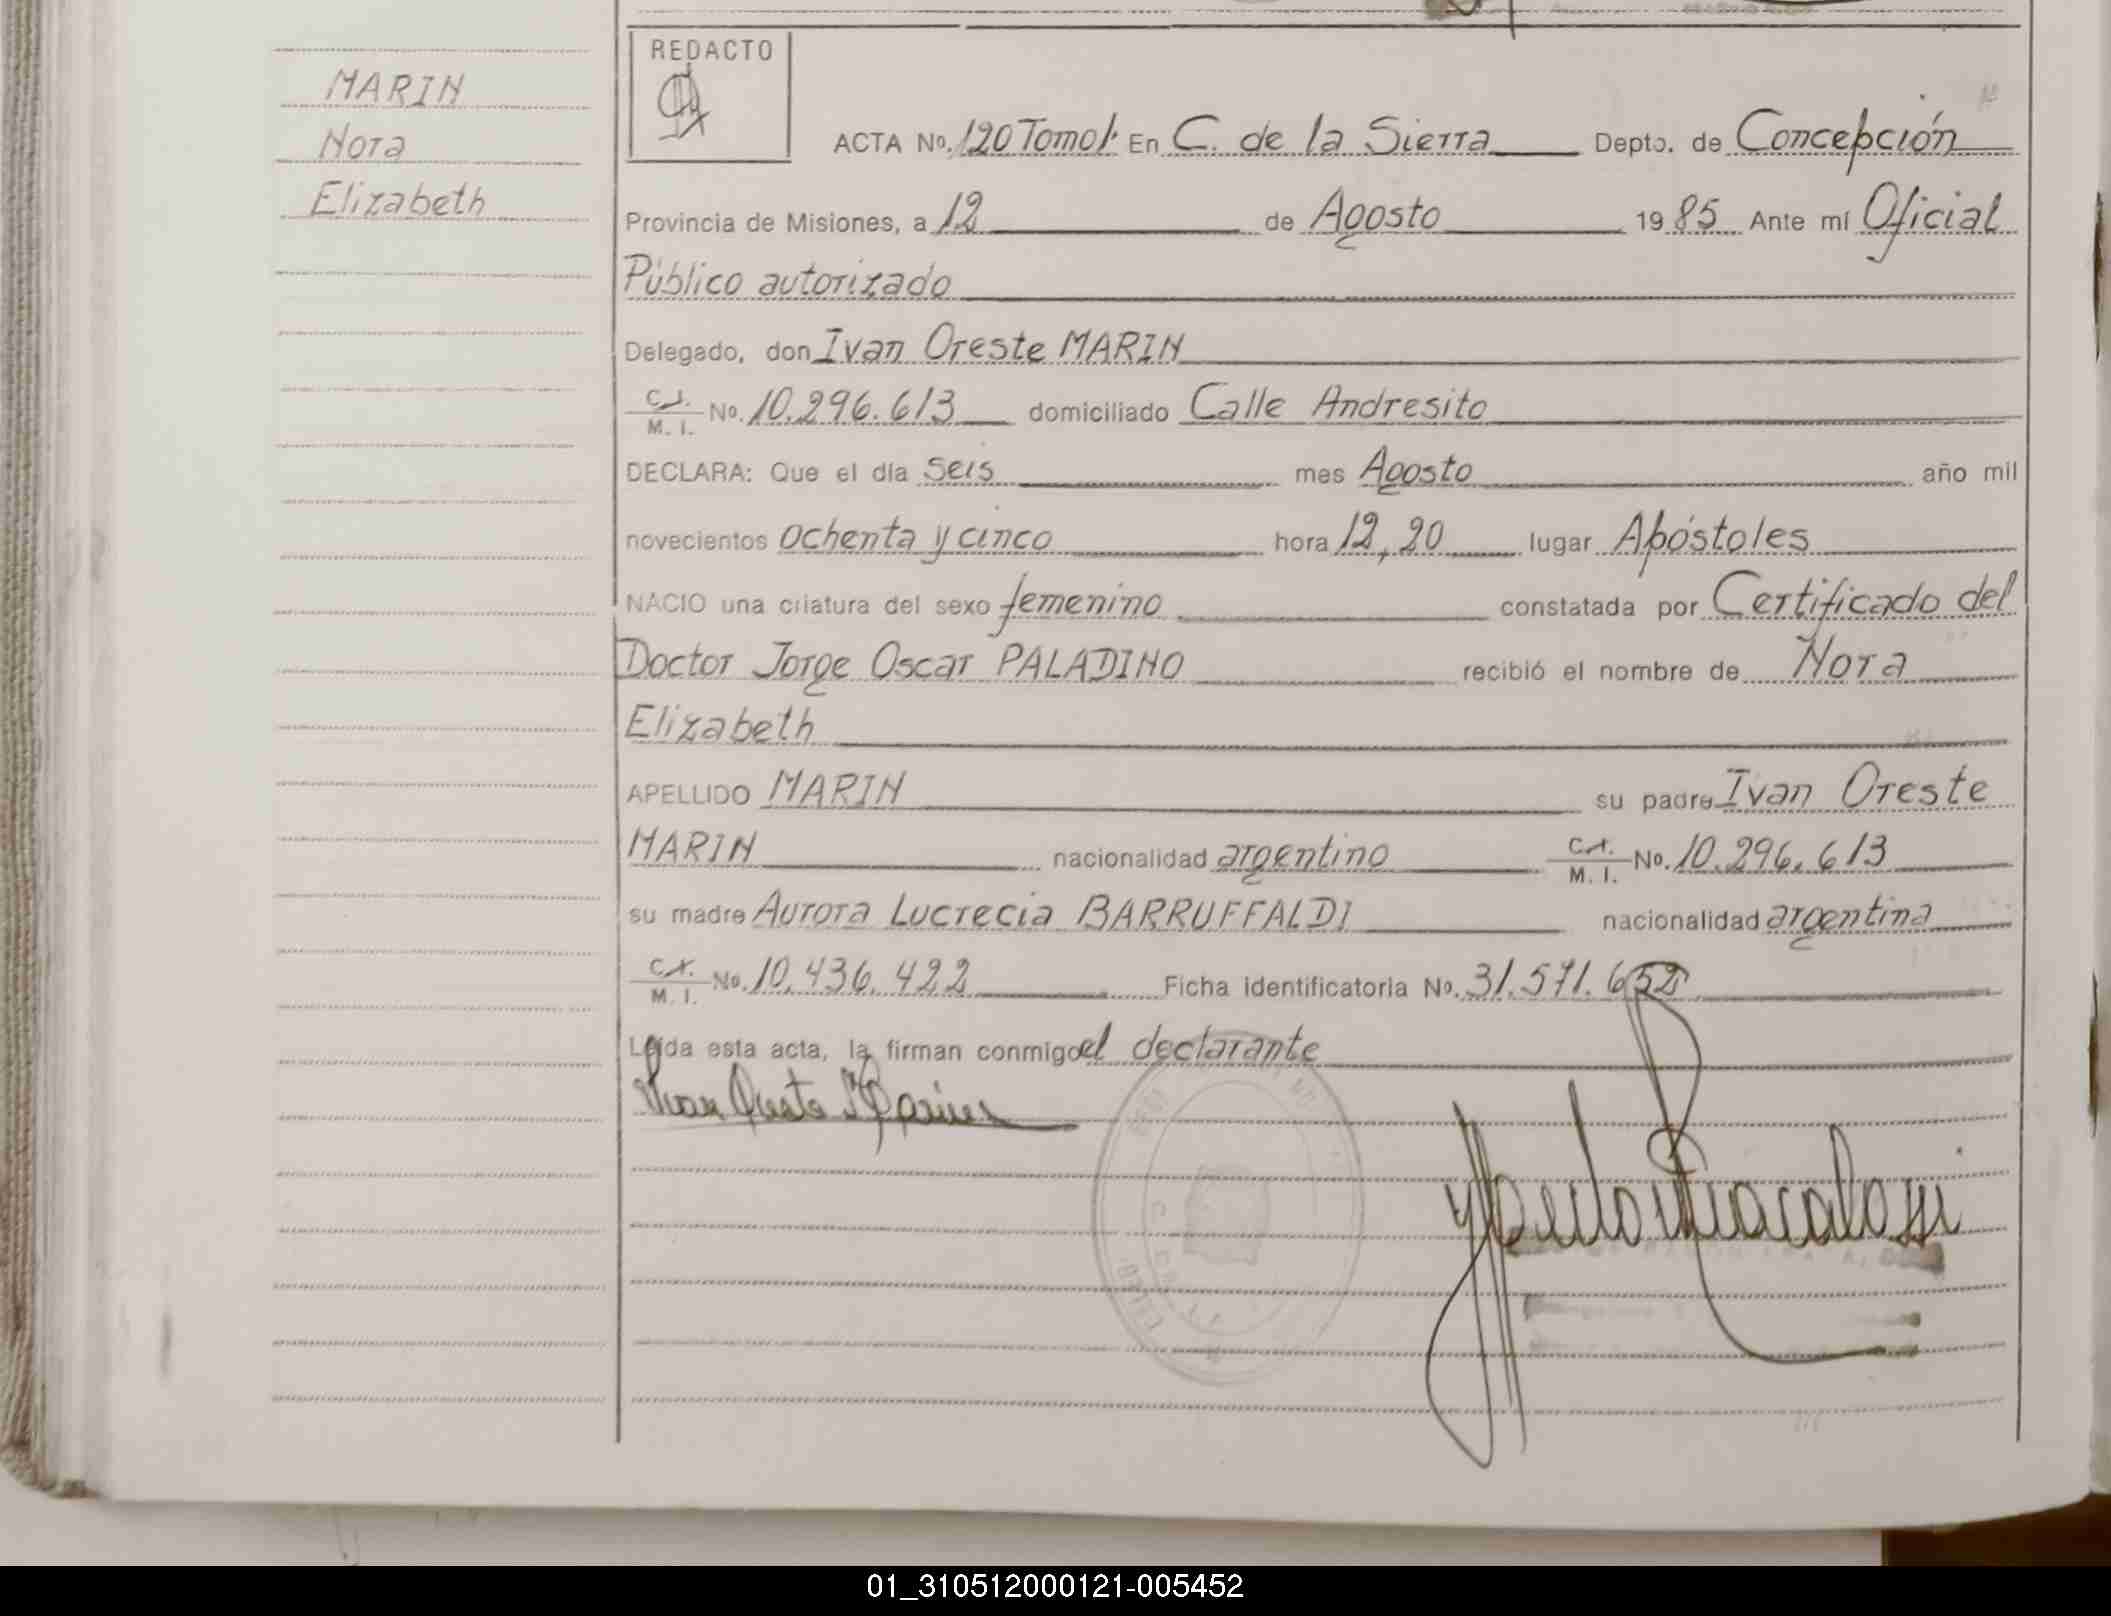 MARIN
Nora
Elizabeth
REDACTO
ACTA No. 120 Tomo I. En C. de la Sierra Depto. de Concepción
Provincia de Misiones, a 12 de Agosto 1985 Ante mí Oficial
Público autorizado
Delegado, don Ivan Oreste MARIN
C. I. M. I. No. 10.296.613 domiciliado Calle Andresito
DECLARA: Que el día seis mes Agosto año mil
novecientos ochenta y cinco hora 12,20 lugar Apóstoles
NACIO una criatura del sexo femenino constatada por Certificado del
Doctor Jorge Oscar PALADINO recibió el nombre de Nora
Elizabeth
APELLIDO MARIN su padre Ivan Oreste
MARIN nacionalidad argentino C. I. M. I. No. 10.296.613
su madre Aurora Lucrecia BARRUFFALDI nacionalidad argentina
C. I. M. I. No. 10.436.422 Ficha identificatoria No. 31.571.652
Leída esta acta, la firman conmigo el declarante
Ivan Oreste Marin
01_310512000121-005452